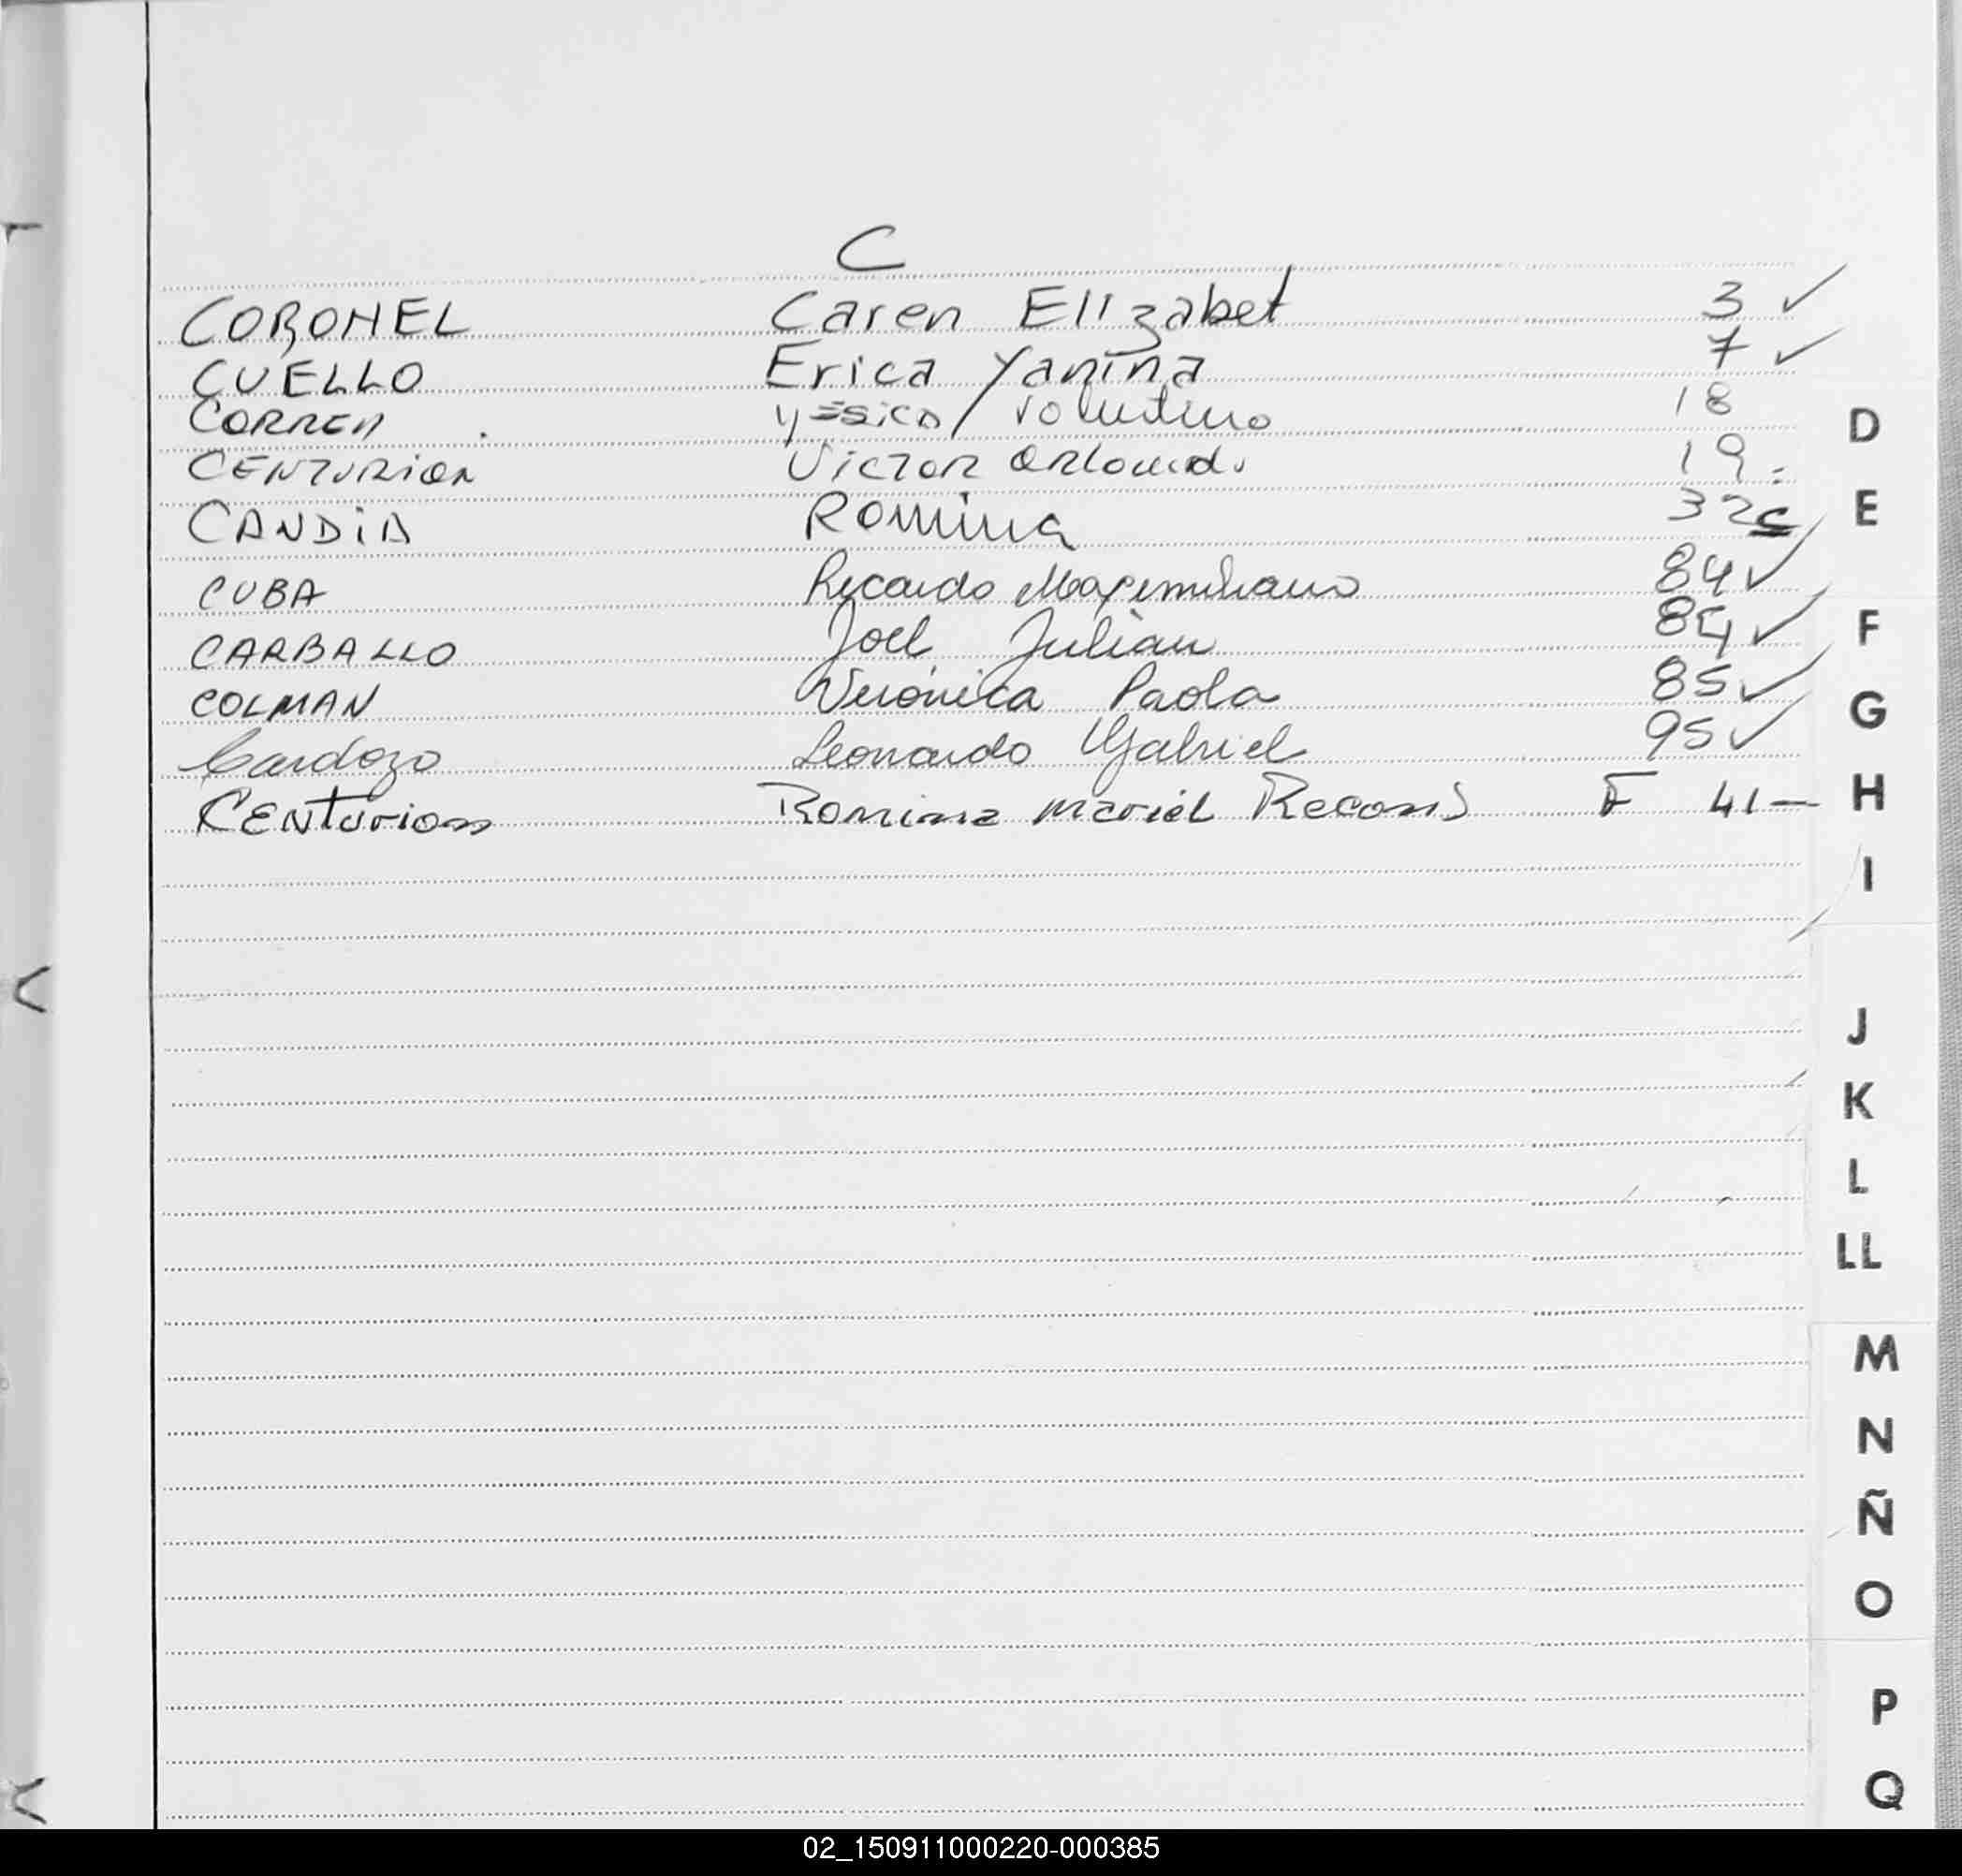 C
CORONEL Caren Elizabet 3 ✓
CUELLO Erica Yanina 7 ✓
CORREA . Yesica / 18
CENTURION Victor Orlando 19
CANDIA Romina 32
CUBA Ricardo Maximiliano 84 ✓
CARBALLO Joel Julian 84 ✓
COLMAN Verónica Paola 85 ✓
Cardozo Leonardo Gabriel 95 ✓
CENturion Romina Mariel F 41 —
D
E
F
G
H
I
J
K
L
LL
M
N
Ñ
O
P
Q
02_150911000220-000385